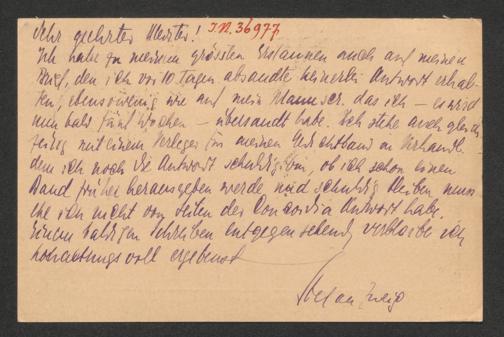 Sehr geehrter Meister! I.N. 36977
Ich habe zu meinem grössten Erstaunen auch auf meinen
Brief, den ich vor 10 Tagen absandte keinerlei Antwort erhal-
ten, ebensowenig wie auf mein Manuscr. das ich – es wird
nun bald fünf Wochen – übersandt habe. Ich stehe auch gleich-
zeitig mit einem Verleger für meinen Gedichtband in Verhandl.
dem ich noch die Antwort schuldig bin, ob ich schon einen
Band früher herausgeben werde, und schuldig bleiben muss
ehe ich nicht von Seiten der Concordia Antwort habe.
Einem baldigen Schreiben entgegensehend, verbleibe ich
hochachtungsvoll ergebenst
Stefan Zweig